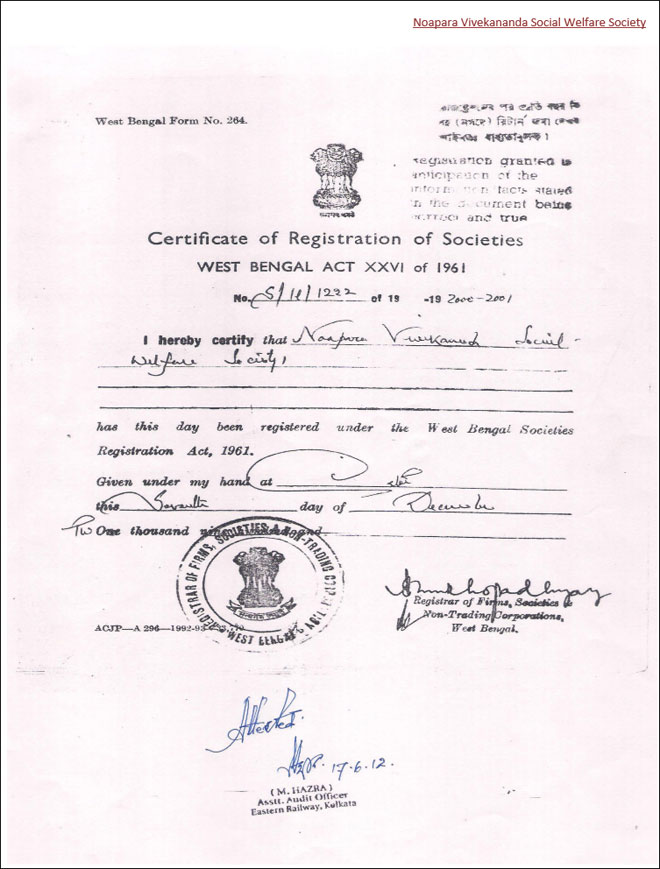 Noapara Vivekananda Social Welfare Society
West Bengal Form No. 264.
Registration granted in
anticipation of the
information facts stated
in the document being
correct and true
Certificate of Registration of Societies
WEST BENGAL ACT XXVI of 1961
No. S/1L/1222 of 19 -19 2000-2001
I hereby certify that Noapara Vivekanand Social
Welfare Society
has this day been registered under the West Bengal Societies
Registration Act, 1961.
Given under my hand at
this Seventh day of December
Two One thousand nine hundred and
REGISTRAR OF FIRMS, SOCIETIES & NON-TRADING CORPORATIONS WEST BENGAL
Registrar of Firms, Societies &
Non-Trading Corporations,
West Bengal.
ACJP—A 296—1992-93
Attested
17.6.12.
(M. HAZRA)
Asstt. Audit Officer
Eastern Railway, Kolkata